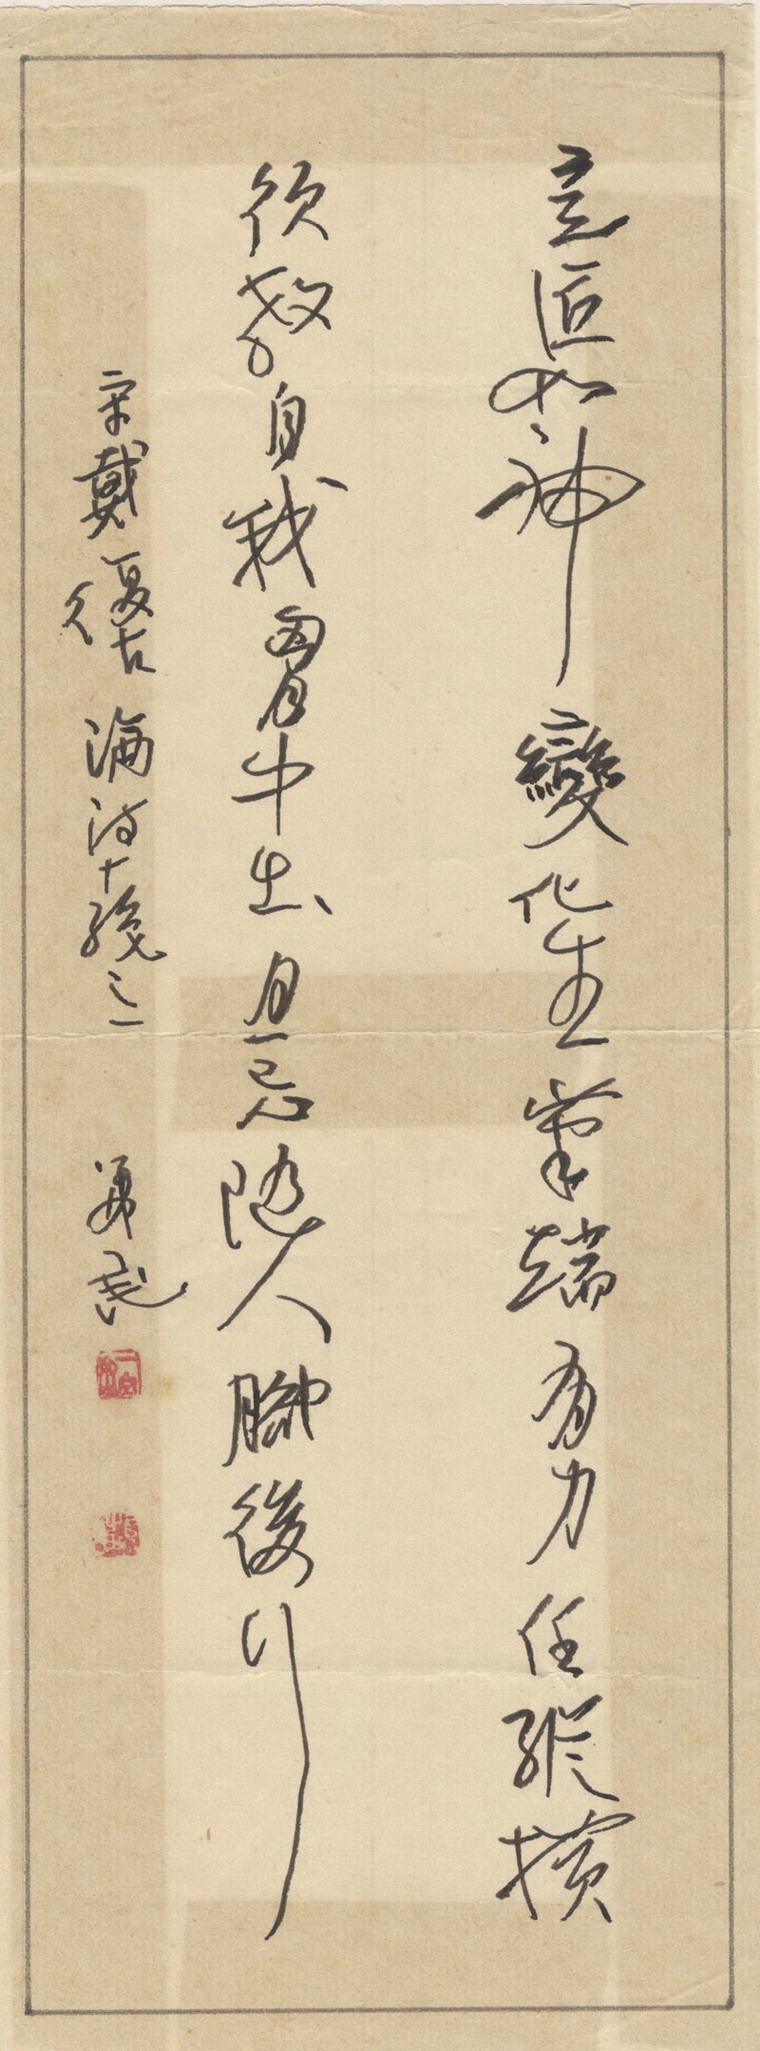 意匠如神變化生筆端有力任縱橫
須教自我胷中出且忌隨人腳後行
宋戴復古論詩十絕之一